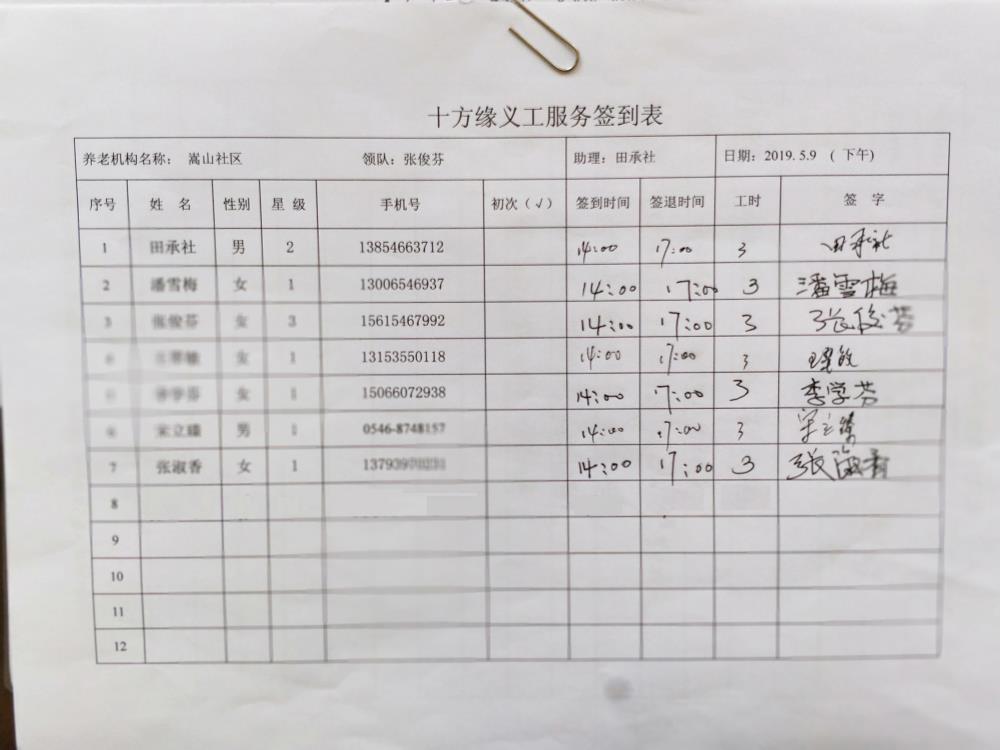 十方缘义工服务签到表
养老机构名称： 嵩山社区 领队：张俊芬 助理：田承社 日期：2019.5.9 （ 下午）
序号 姓 名 性别 星 级 手机号 初次（√） 签到时间 签退时间 工时 签 字
1 田承社 男 2 13854663712 14:00 17:00 3 田承社
2 潘雪梅 女 1 13006546937 14:00 17:00 3 潘雪梅
3 张俊芬 女 3 15615467992 14:00 17:00 3 张俊芬
女 1 13153550118 14:00 17:00 3
女 1 15066072938 14:00 17:00 3 李学芬
宋立臻 男 1 0546-8748157 14:00 17:00 3
7 张淑香 女 1 14:00 17:00 3 张淑香
8
9
10
11
12